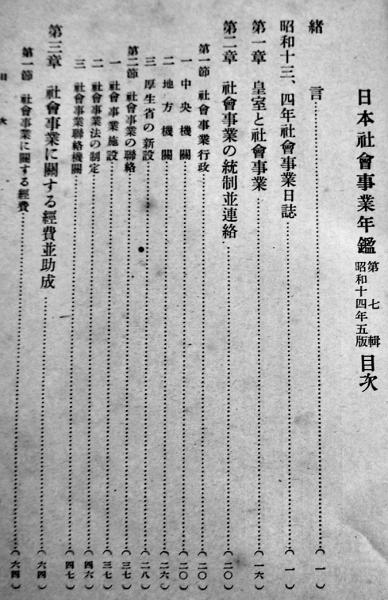 日本社會事業年鑑 第七輯 昭和十四年五版 目次
緒言……（一）
昭和十三、四年社會事業日誌……（一）
第一章 皇室と社會事業……（一六）
第二章 社會事業の統制並連絡……（二〇）
第一節 社會事業行政……（二〇）
一 中央機關……（二〇）
二 地方機關……（二六）
三 厚生省の新設……（二八）
第二節 社會事業の聯絡……（三七）
一 社會事業施設……（三七）
二 社會事業法の制定……（四六）
三 社會事業聯絡機關……（四七）
第三章 社會事業に關する經費並助成……（六四）
第一節 社會事業に關する經費……（六四）
目次